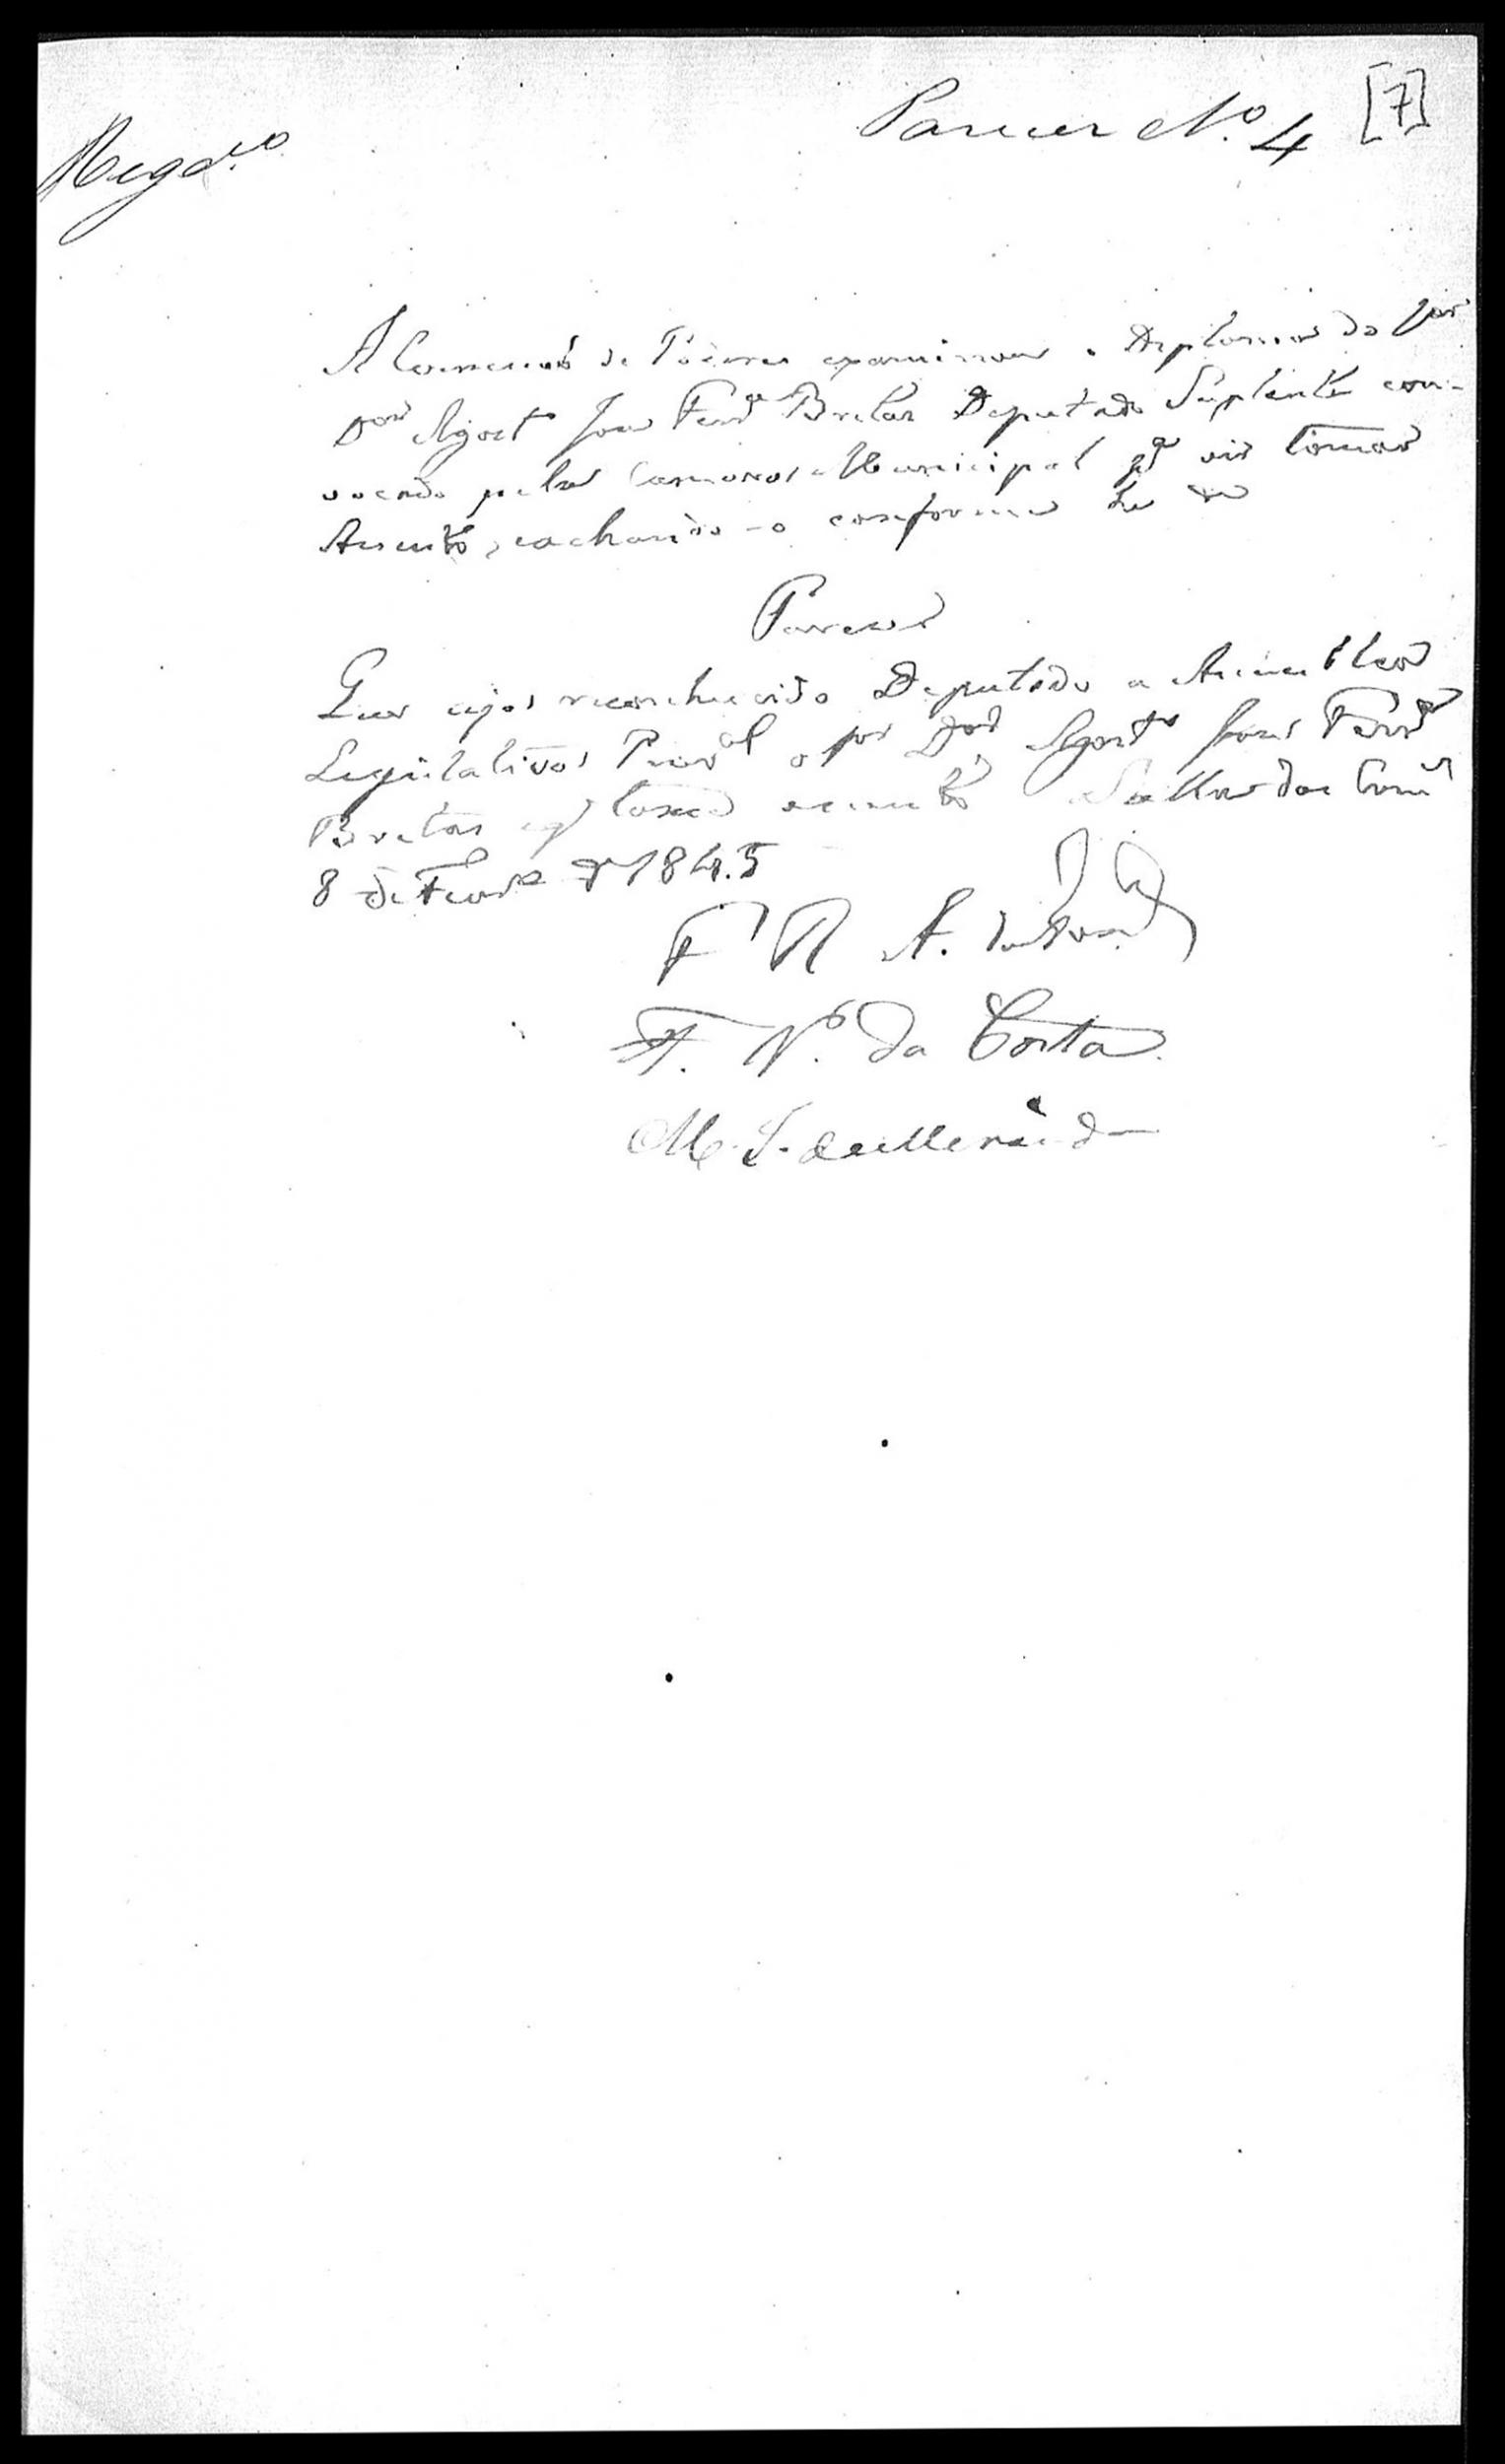 Parecer Nº 4 [7]
Regdo
A Commissaõ de Poderes examinou o Diploma do Snr
Dor Agosto José Ferra Bretas Deputado Suplente con-
vocado pela Camara Municipal pa vir tomar
Assento, e achando-o conforme he de
Parecer
Que seja reconhecido Deputado a Assemblea
Legislativa Proval o Snr Dor Agosto José Ferra
Bretas e q' tome assento Salla das Comes
8 de Fevro de 1845
F R A.
F. N. da Costa
M. J. de Miranda